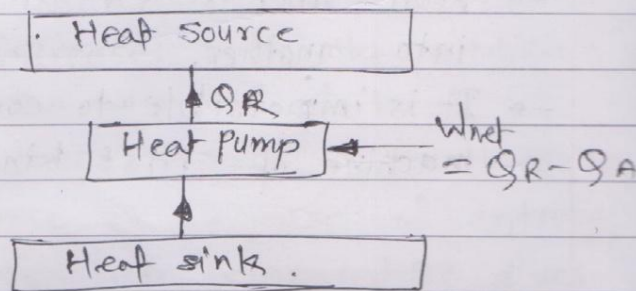 Heat Source
QR
Heat Pump
Wnet
= QR - QA
Heat sink